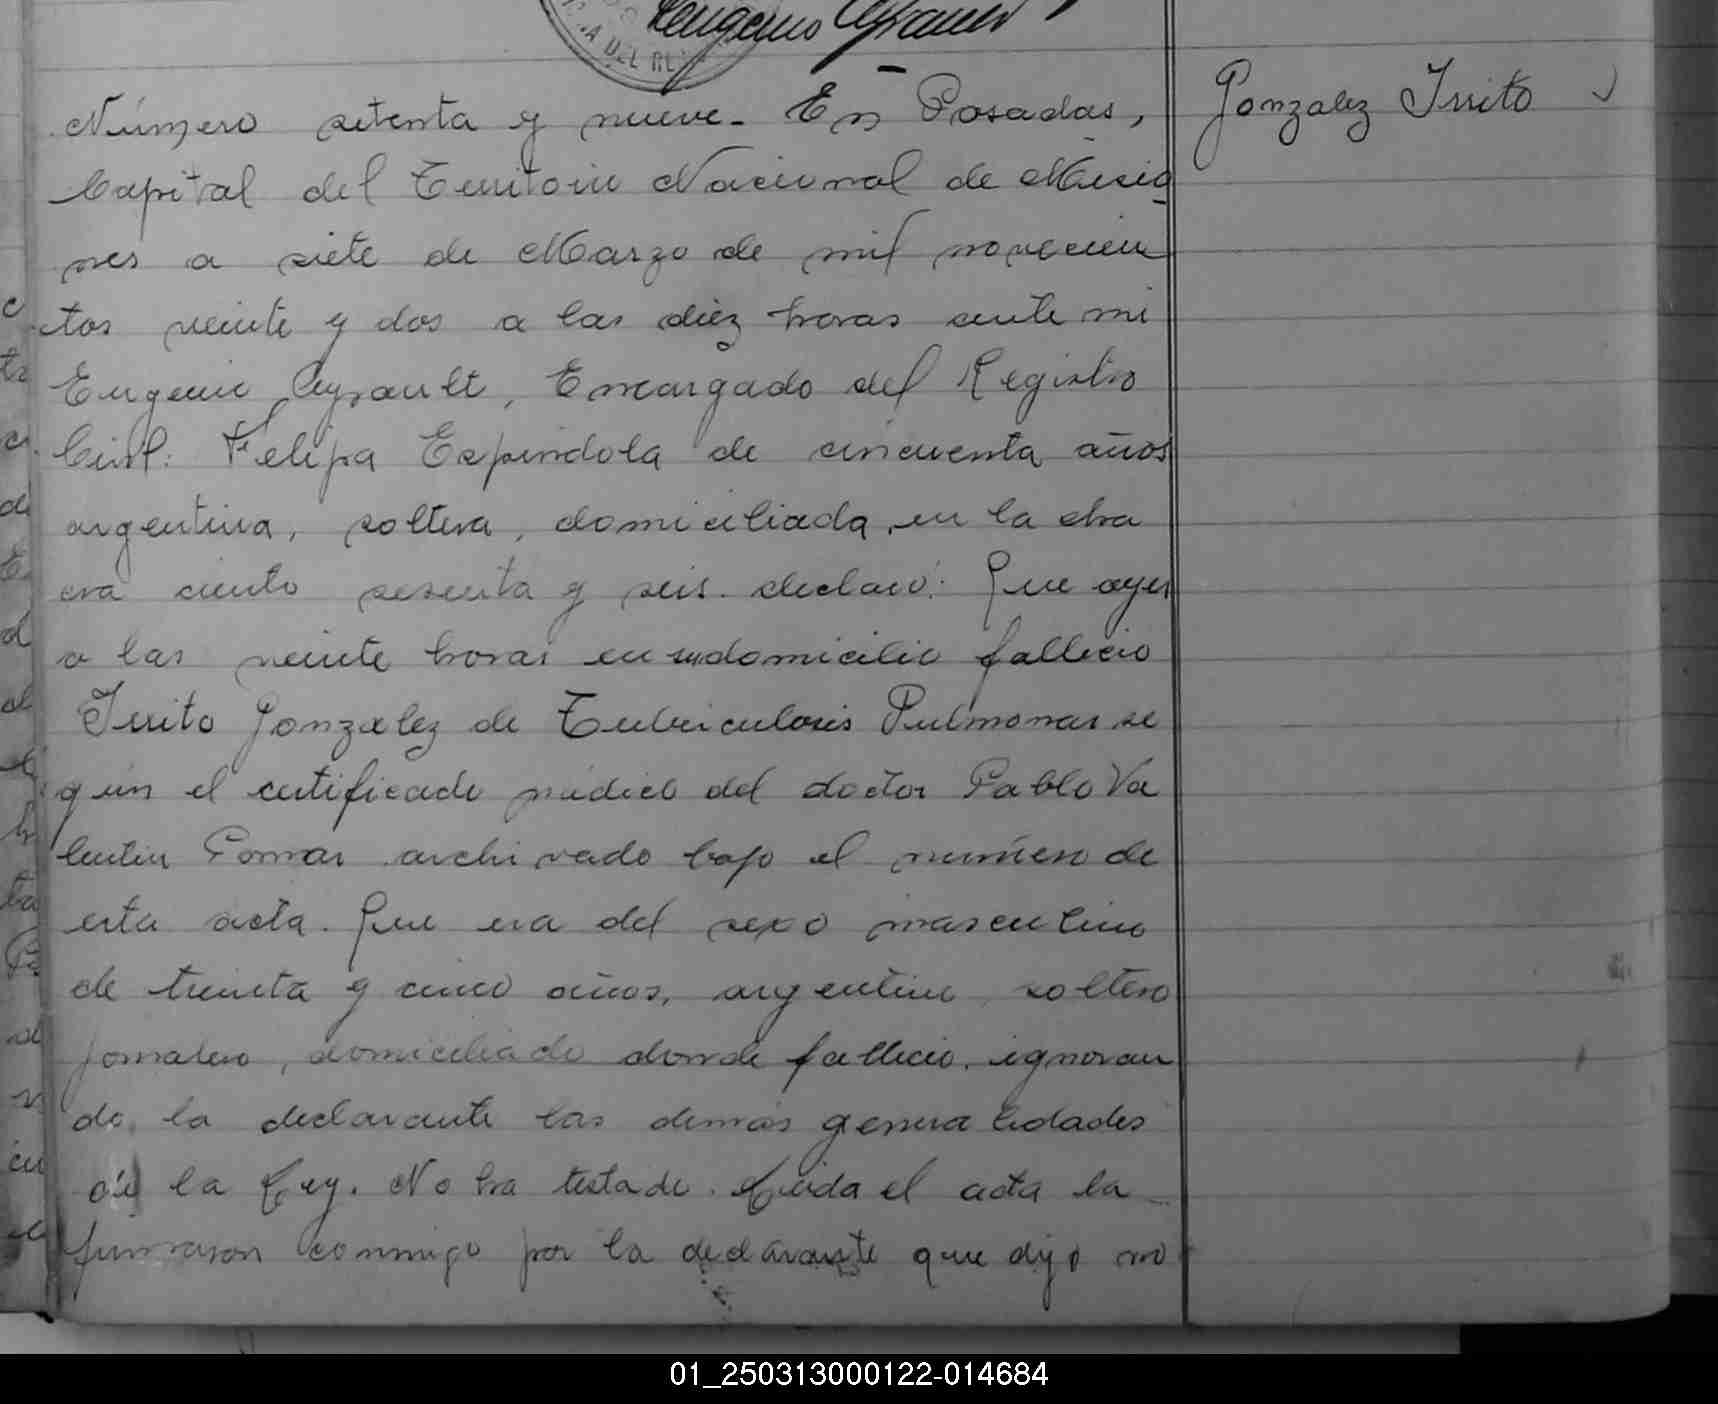 Eugenio Ayrault
DEL
Número setenta y nueve. En Posadas,
Gonzalez Irrito
Capital del Territorio Nacional de Misio
nes a siete de Marzo de mil novecien
tos veinte y dos a las diéz horas ante mi
Eugenio Ayrault, Encargado del Registro
Civil: Felipa Espindola de cincuenta años
argentina, soltera, domiciliada en la cha
cra ciento sesenta y seis. declaró: Que ayer
a las veinte horas en su domicilio fallecio
Irrito Gonzalez de Tuberculosis Pulmonar se
gún el certificado médico del doctor Pablo Va
lentin Pomar archivado bajo el número de
esta acta. Que era del sexo masculino
de treinta y cinco años, argentino, soltero
jornalero, domiciliado donde fallecio. ignoran
do la declarante las demás generalidades
de la Ley. No ha testado. Leida el acta la
firmaron conmigo por la declarante que dijo no
01_250313000122-014684